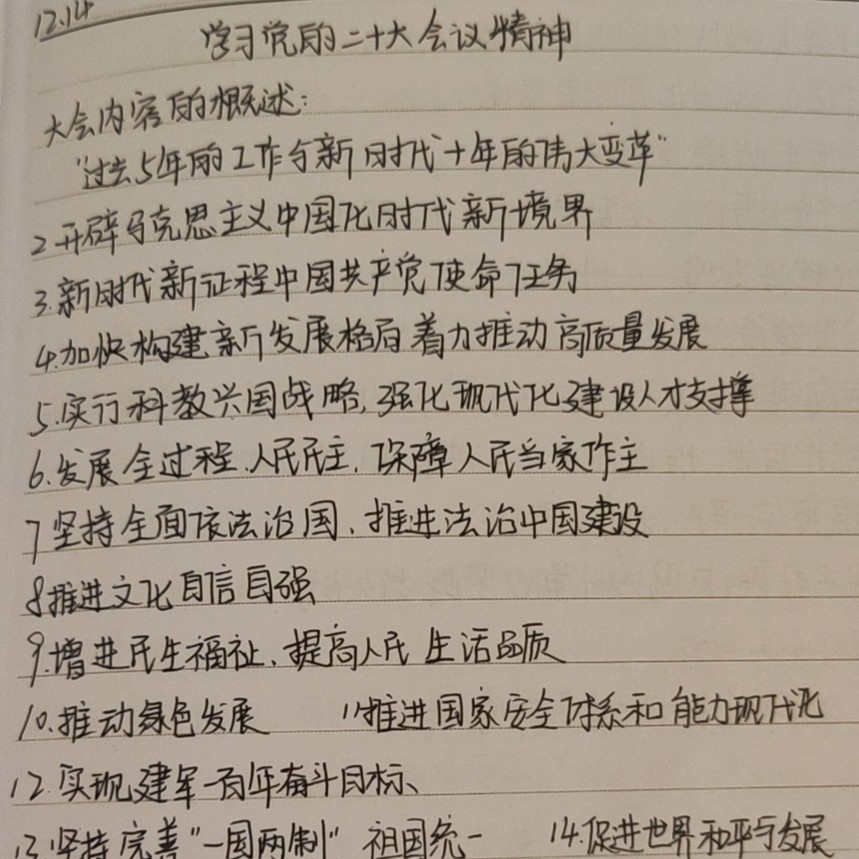 12.14
学习党的二十大会议精神
大会内容的概述:
"过去5年的工作与新时代十年的伟大变革"
2.开辟马克思主义中国化时代新境界
3.新时代新征程中国共产党使命任务
4.加快构建新发展格局着力推动高质量发展
5.实行科教兴国战略,强化现代化建设人才支撑
6.发展全过程.人民民主.保障人民当家作主
7坚持全面依法治国.推进法治中国建设
8推进文化自信自强
9.增进民生福祉.提高人民生活品质
10.推动绿色发展 11推进国家安全体系和能力现代化
12.实现建军一百年奋斗目标、
13坚持完善"一国两制" 祖国统一 14.促进世界和平与发展